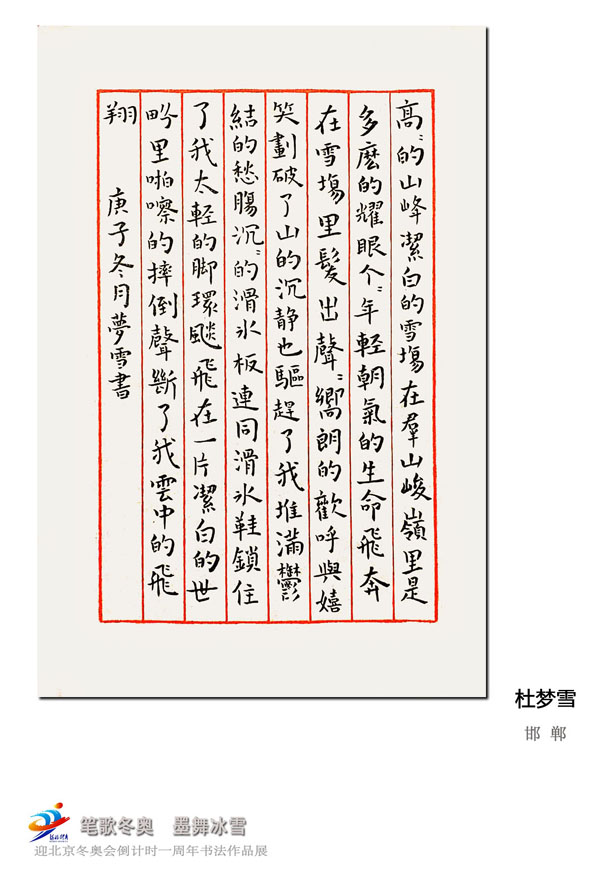 高〻的山峰潔白的雪塲在羣山峻嶺里是
多麽的耀眼个〻年軽朝氣的生命飛奔
在雪塲里髮出聲〻嚮朗的歡呼與嬉
笑劃破了山的沉静也驅趕了我堆滿鬱
結的愁腸沉〻的滑氷板連同滑氷鞋鎖住
了我太軽的脚環飈飛在一片潔白的世
畍里啪嚓的摔倒聲斷了我雲中的飛
翔
庚子冬月夢雪書
杜梦雪
邯郸
笔歌冬奥 墨舞冰雪
迎北京冬奥会倒计时一周年书法作品展